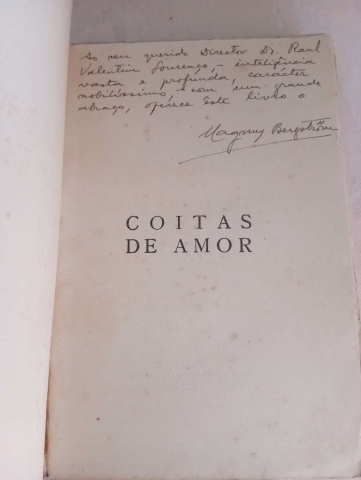 Ao seu querido Director Dr. Raul
Valentim Lourenço, - inteligência
vasta e profunda, carácter
nobilíssimo, - com um grande
abraço, oferece êste livro o
Magnus Bergström
COITAS
DE AMOR